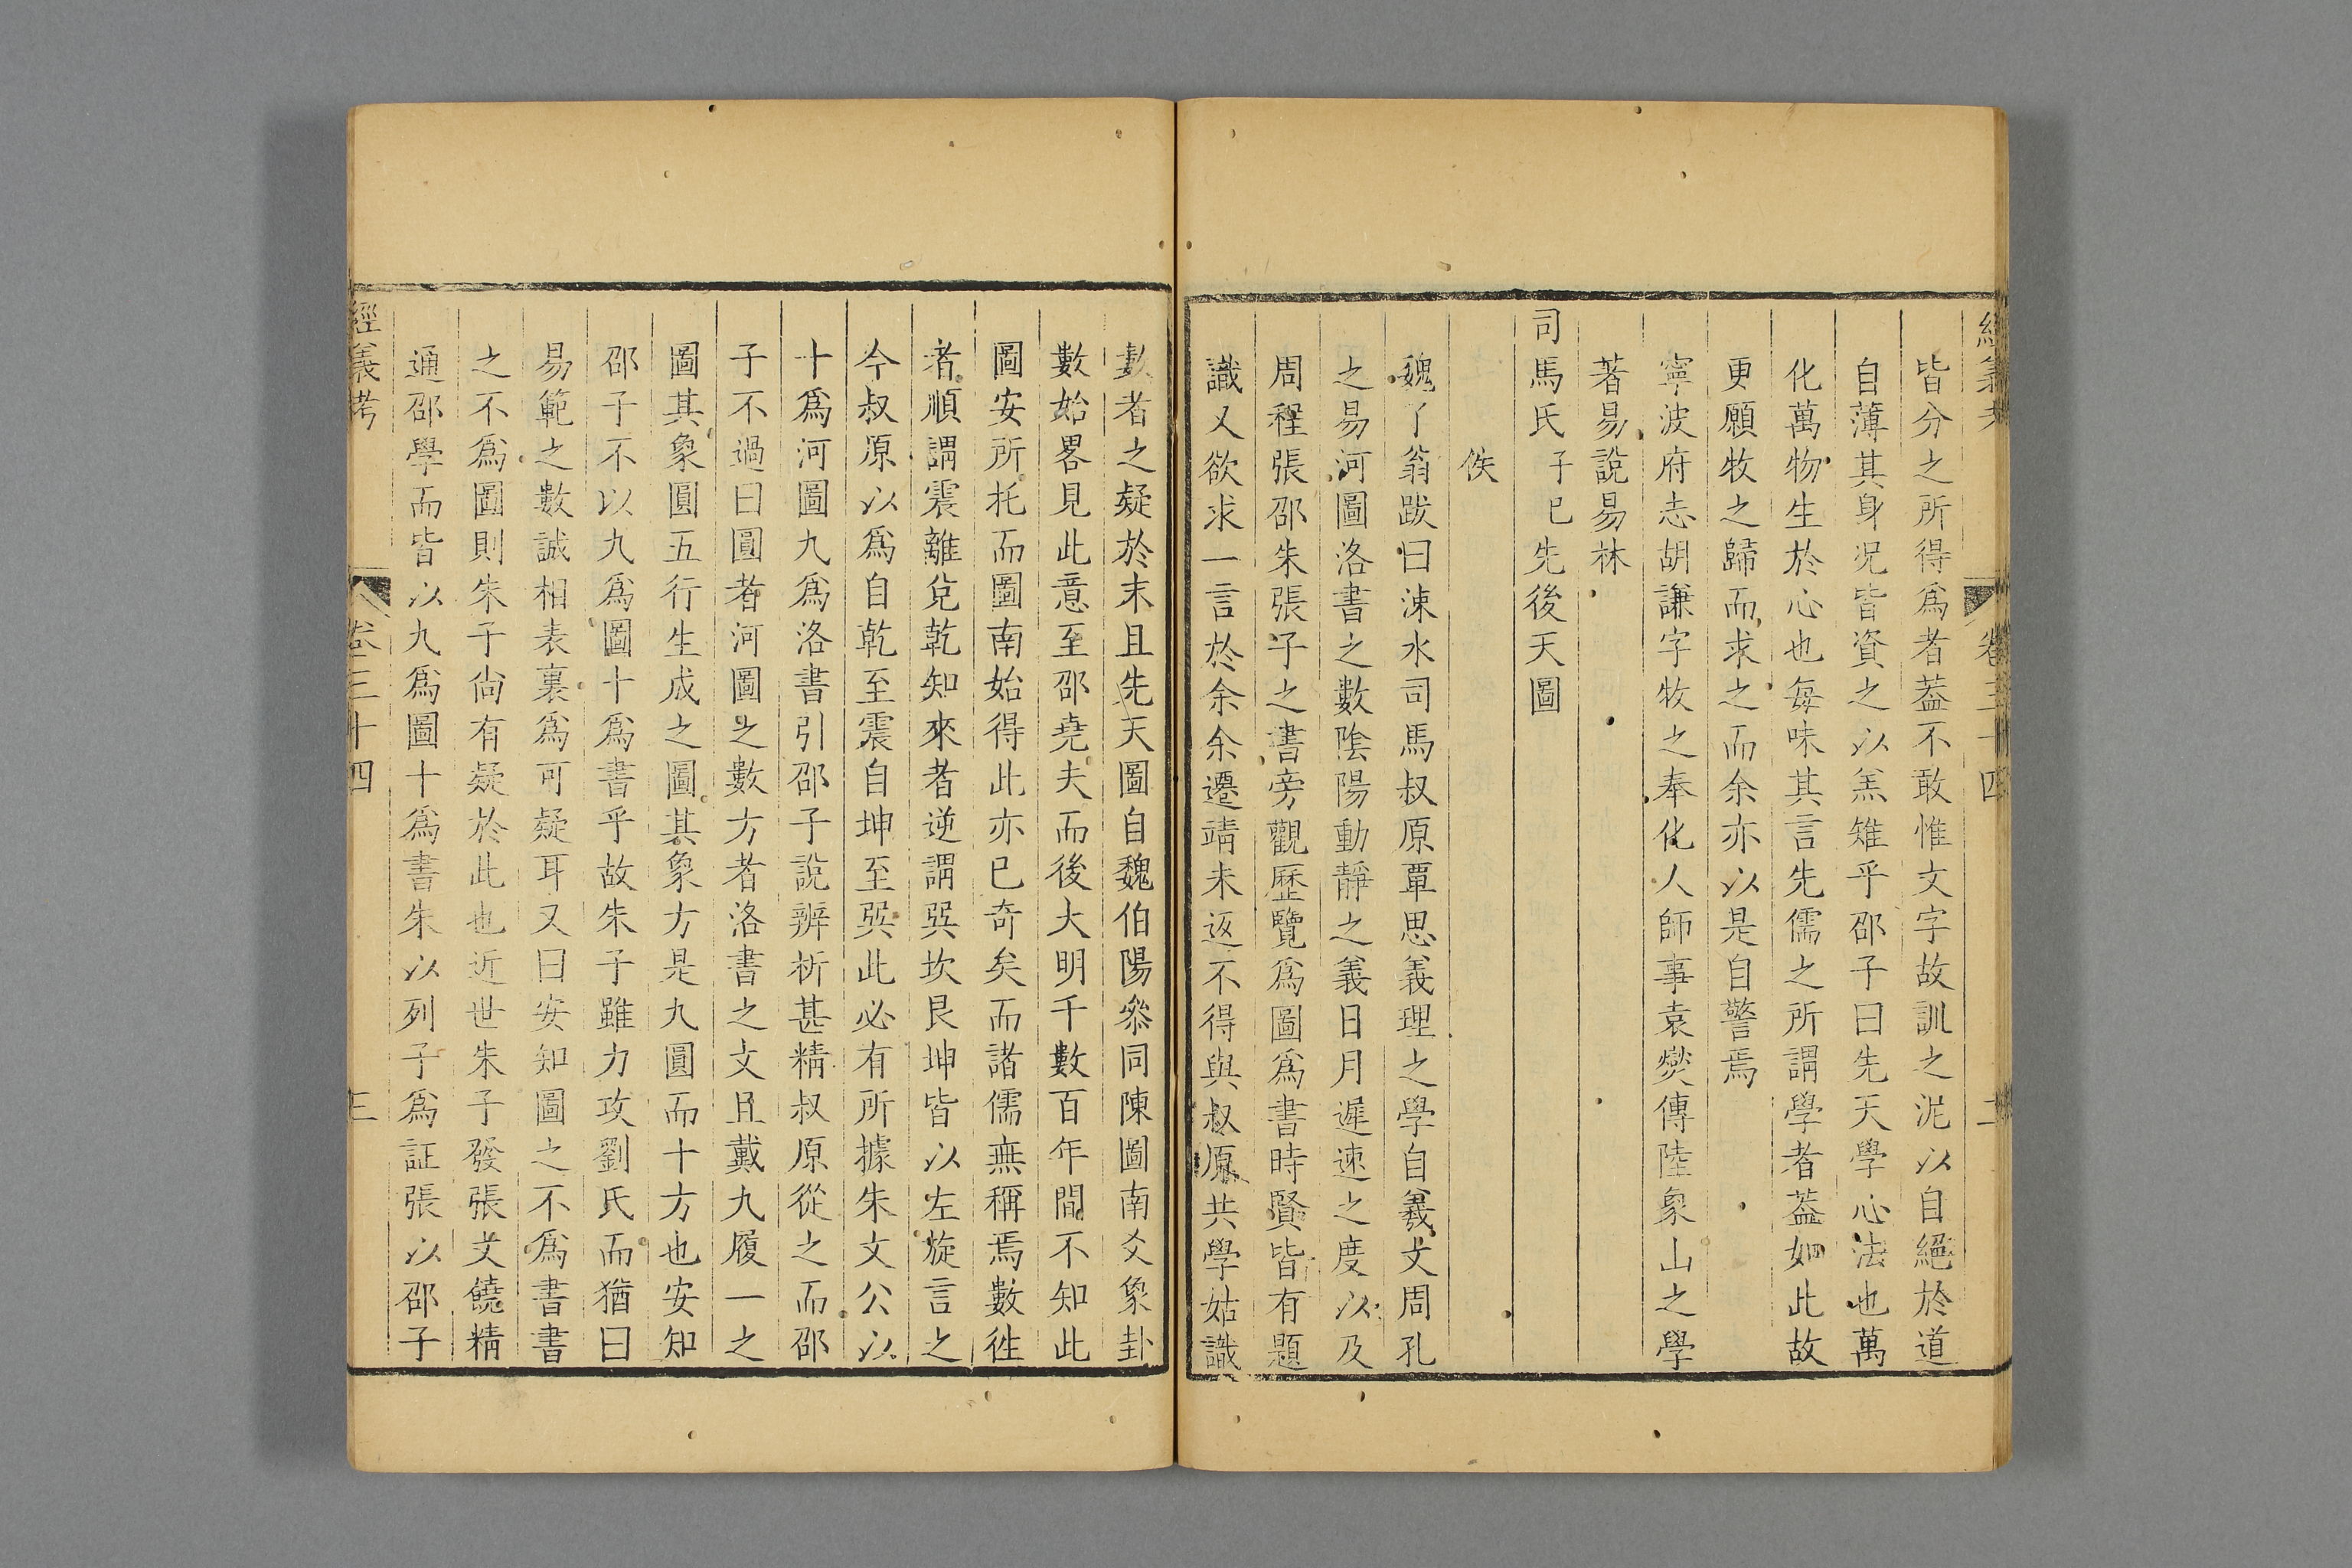 經義考 卷三十四 二
皆分之所得爲者葢不敢惟文字故訓之泥以自絕於道
自薄其身况皆資之以羔雉乎邵子曰先天學心法也萬
化萬物生於心也每味其言先儒之所謂學者葢如此故
更願牧之歸而求之而余亦以是自警焉
寧波府志胡謙字牧之奉化人師事袁燮傳陸象山之學
著易說易林
司馬氏子巳先後天圖
佚
魏了翁跋曰涑水司馬叔原覃思義理之學自羲文周孔
之易河圖洛書之數陰陽動靜之義日月遲速之度以及
周程張邵朱張子之書旁觀歷覽爲圖爲書時賢皆有題
識又欲求一言於余余遷靖未返不得與叔原共學姑識
數者之疑於末且先天圖自魏伯陽叅同陳圖南爻象卦
數始畧見此意至邵堯夫而後大明千數百年間不知此
圖安所托而圖南始得此亦已奇矣而諸儒無稱焉數徃
者順謂震離兌乾知來者逆謂巽坎艮坤皆以左旋言之
今叔原以爲自乾至震自坤至巽此必有所據朱文公以
十爲河圖九爲洛書引邵子說辨析甚精叔原從之而邵
子不過曰圓者河圖之數方者洛書之文且戴九履一之
圖其象圓五行生成之圖其象方是九圓而十方也安知
邵子不以九爲圖十爲書乎故朱子雖力攻劉氏而猶曰
易範之數誠相表裏爲可疑耳又曰安知圖之不爲書書
之不爲圖則朱子尙有疑於此也近世朱子發張文饒精
通邵學而皆以九爲圖十爲書朱以列子爲証張以邵子
經義考 卷三十四 三